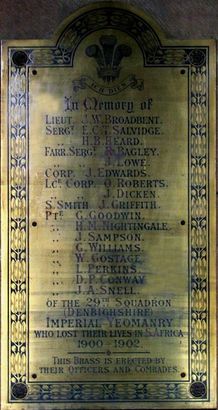 ICH DIEN
In Memory of
LIEUT. J.W. BROADBENT.
SERGT. E.C.T. SALVIDGE.
,, H.B. HEARD.
FARR. SERGT. R. BAGLEY.
,, J. LOWE.
CORP. J. EDWARDS.
LCE. CORP. O. ROBERTS.
,, J. DICKEN.
S. SMITH J. GRIFFITH.
PTE. G. GOODWIN.
,, H.M. NIGHTINGALE.
,, J. SAMPSON.
,, G. WILLIAMS.
,, W. GOSTAGE.
,, L. PERKINS.
,, D.P. CONWAY
,, J.A. SNELL.
OF THE 29TH SQUADRON
(DENBIGHSHIRE)
IMPERIAL YEOMANRY
WHO LOST THEIR LIVES IN S. AFRICA
1900-1902.
THIS BRASS IS ERECTED BY
THEIR OFFICERS AND COMRADES.